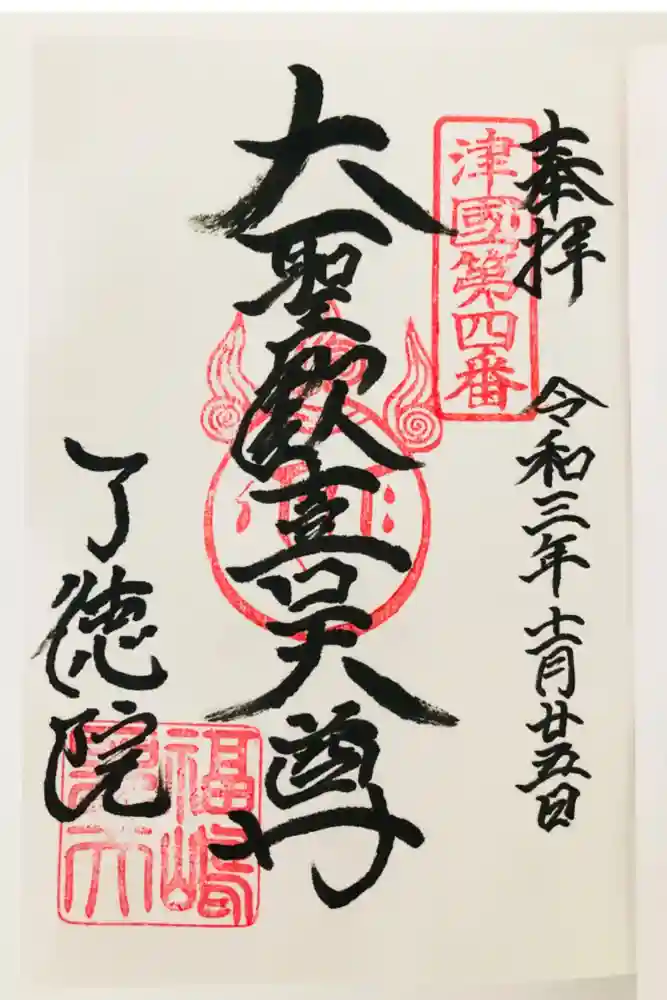 奉拝
令和三年十一月廿五日
津國第四番
大聖歓喜天尊
了徳院
福嶋
聖天